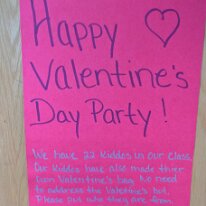 Happy
Valentine's
Day Party!
We have 22 kiddos in our class.
Our kiddos have also made thier
own Valentine's bag. No need
to address the Valentine's but,
Please put who they are from